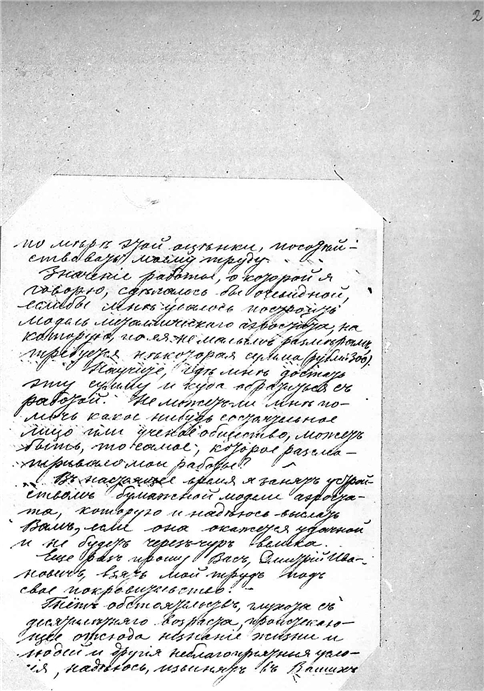 2
по мѣрѣ этой оцѣнки, посодѣй-
ствовать моему труду.
Значеніе работы, о которой я
говорю, сдѣлалось бы очевидной,
еслибы мнѣ удалось построить
модель металлическаго аэростата, на
которую, полагая малыя размѣрами,
требуется нѣкоторая сумма (рублей 300).
Научите, гдѣ мнѣ достать
эту сумму и куда обратиться съ
работой. Не можетъ ли мнѣ по-
мочь какое нибудь состоятельное
лицо или ученое общество, можетъ
быть, то самое, которое разсма-
тривало мои работы?
Въ настоящее время я занятъ устрой-
ствомъ бумажной модели аэроста-
та, которую и надѣюсь выслать
Вамъ, если она окажется удачной
и не будетъ черезъ-чуръ велика.
Еще разъ прошу Васъ, Дмитрій Ива-
новичъ, взять мой трудъ подъ
свое покровительство.
Гнётъ обстоятельствъ, глухота съ
десятилѣтняго возраста, происходя-
щее отсюда незнаніе жизни и
людей и другія неблагопріятныя усло-
вія, надѣюсь, извинятъ въ Вашихъ